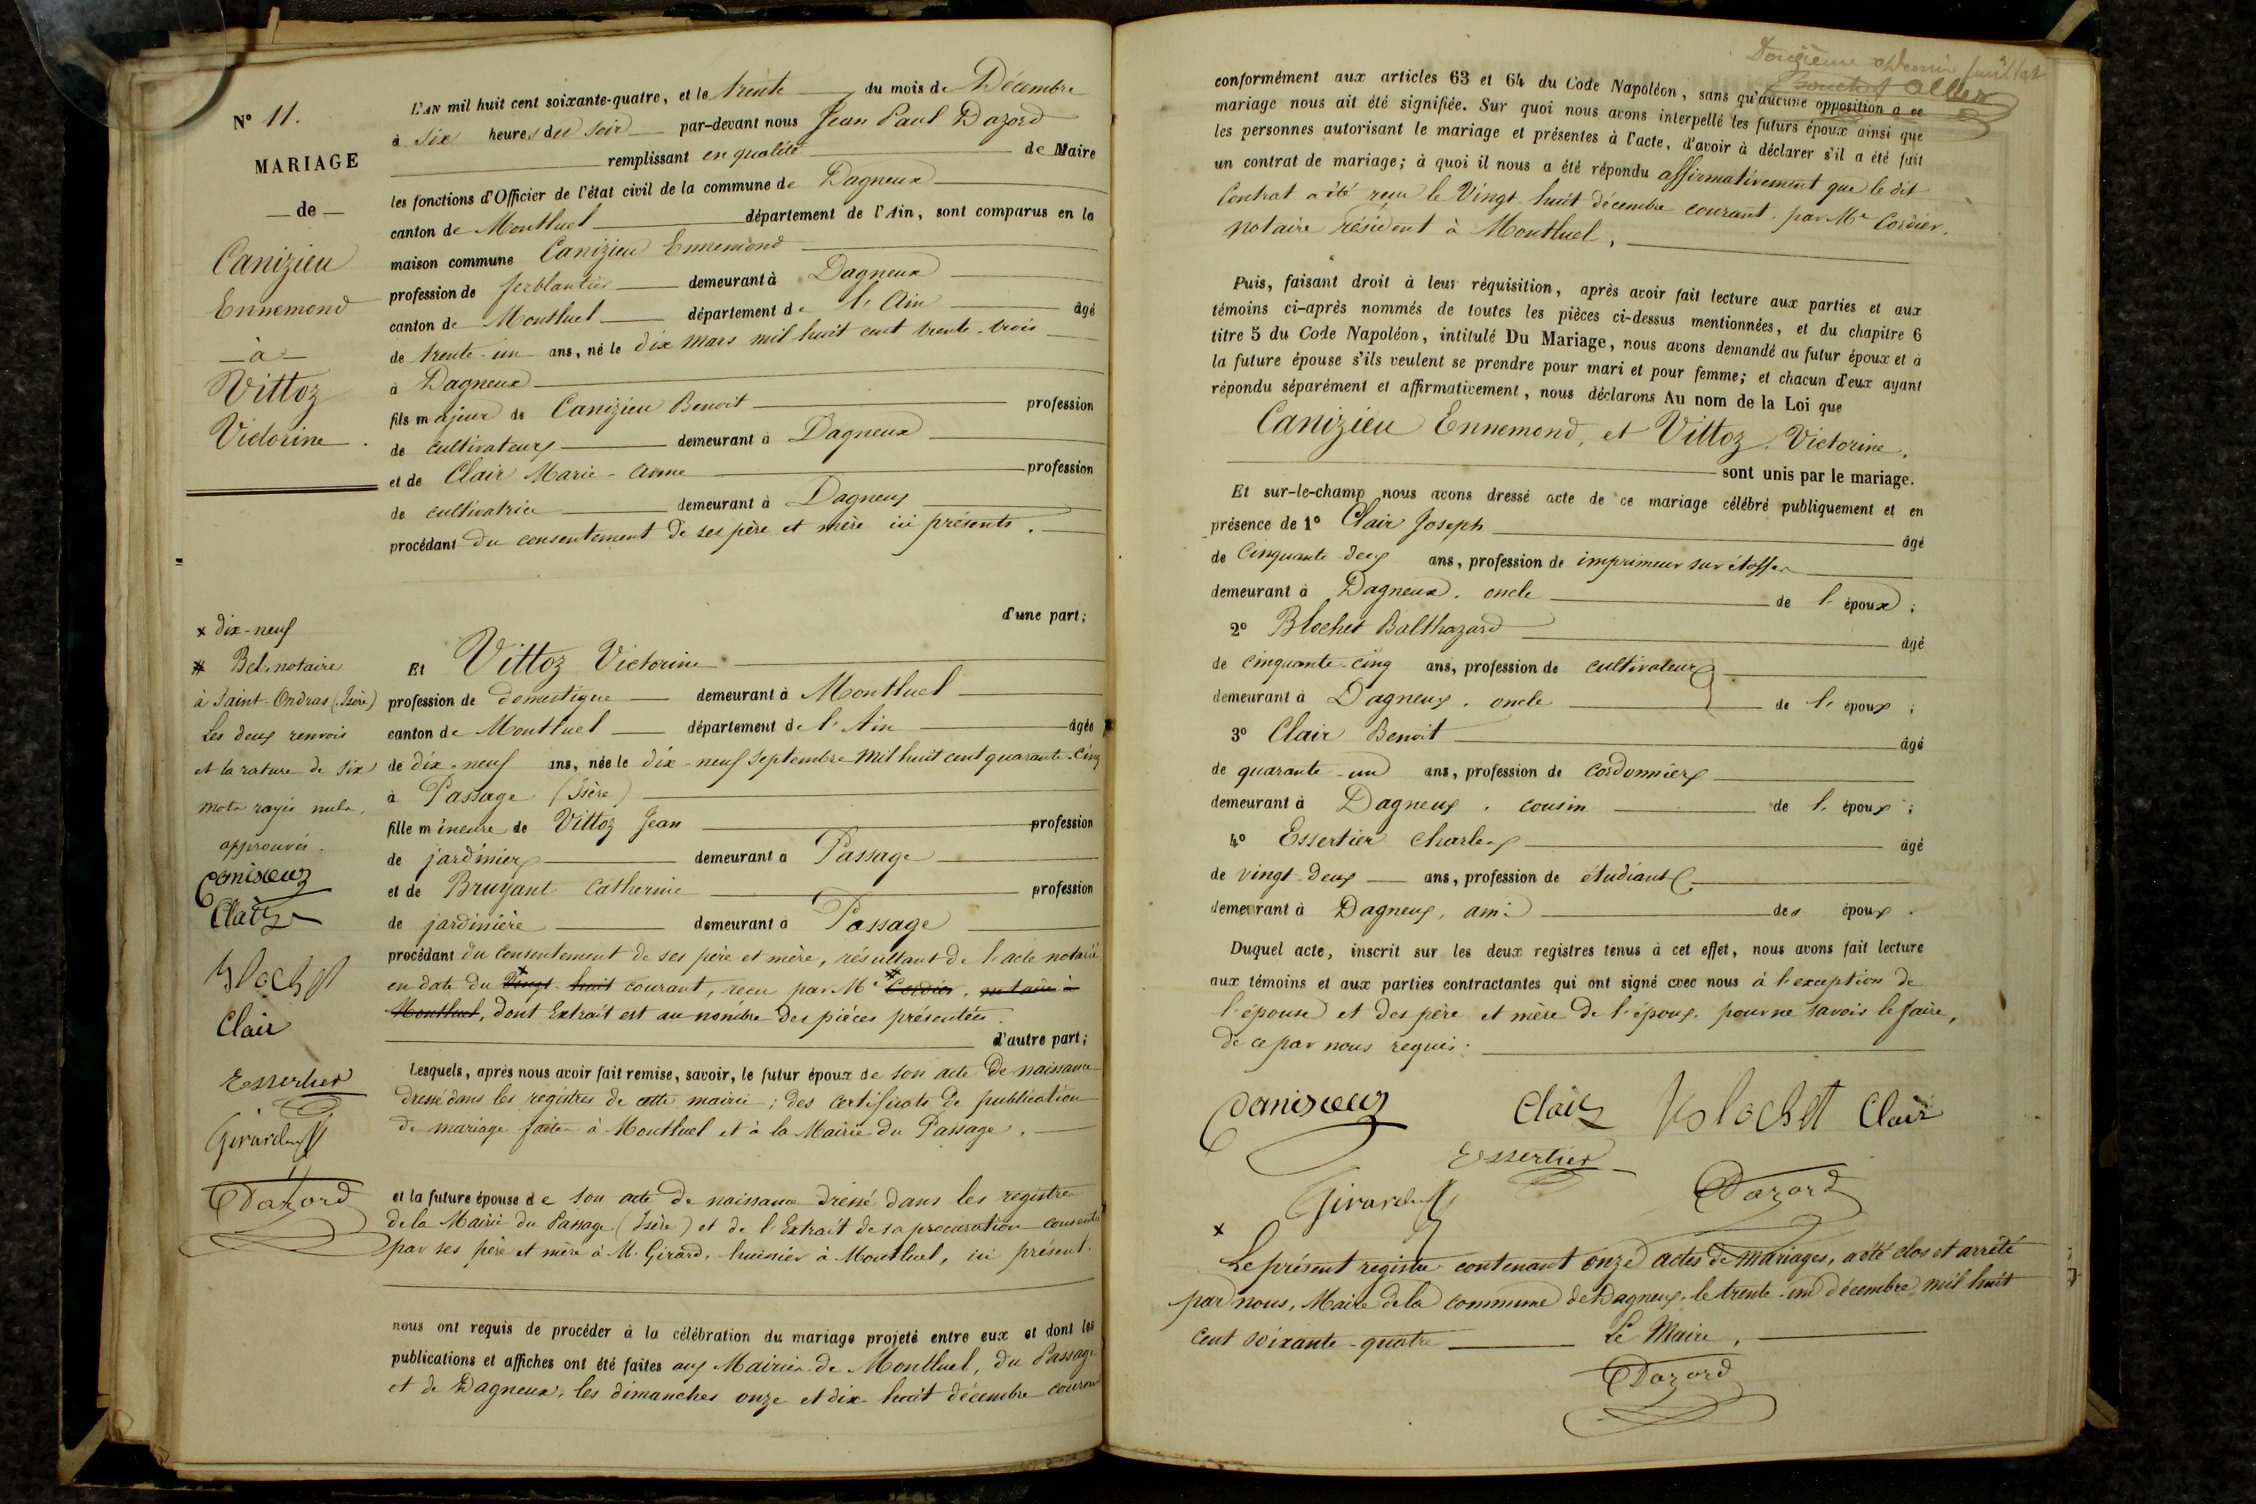 N° 11.
MARIAGE
de
Canizieu
Ennemond
à
Vittoz
Victorine.
L'AN mil huit cent soixante-quatre, et le trente du mois de Décembre
à six heures du soir par-devant nous Jean Paul Dazord
remplissant en qualité de Maire
les fonctions d'Officier de l'état civil de la commune de Dagneux
canton de Montluel département de l'Ain, sont comparus en la
maison commune Canizieu Ennemond
profession de ferblantier demeurant à Dagneux
canton de Montluel département de l'Ain âgé
de trente-un ans, né le dix mars mil huit cent trente-trois
à Dagneux
fils majeur de Canizieu Benoit profession
de cultivateur demeurant à Dagneux
et de Clair Marie-Anne profession
de cultivatrice demeurant à Dagneux
procédant du consentement de ses père et mère ici présents.
d'une part;
x dix-neuf
# Bel, notaire
à Saint-Ondras (Isère)
Les deux renvois
et la rature de six
mots rayés nuls,
approuvés.
Canizieuz
Clair
Blochet
Clair
Essertier
Girard
Dazord
Et Vittoz Victorine
profession de domestique demeurant à Montluel
canton de Montluel département de l'Ain âgée
de dix-neuf ans, née le dix-neuf septembre mil huit cent quarante-cinq
à Passage (Isère)
fille mineure de Vittoz Jean profession
de jardinier demeurant à Passage
et de Bruyant Catherine profession
de jardinière demeurant à Passage
procédant du consentement de ses père et mère, résultant de l'acte notarié
en date du x vingt-huit courant, reçu par Me # Cordier, notaire à
Montluel, dont Extrait est au nombre des pièces présentées.
d'autre part;
Lesquels, après nous avoir fait remise, savoir, le futur époux de son acte de naissance
dressé dans les registres de cette mairie; des certificats de publication
de mariage faites à Montluel et à la Mairie du Passage.
et la future épouse de son acte de naissance dressé dans les registres
de la Mairie du Passage (Isère) et de l'Extrait de sa procuration consentie
par ses père et mère à M. Girard, huissier à Montluel, ici présent.
nous ont requis de procéder à la célébration du mariage projeté entre eux et dont les
publications et affiches ont été faites aux Mairies de Montluel, du Passage
et de Dagneux, les dimanches onze et dix-huit décembre courant
conformément aux articles 63 et 64 du Code Napoléon, sans qu'aucune opposition à ce
mariage nous ait été signifiée. Sur quoi nous avons interpellé les futurs époux ainsi que
les personnes autorisant le mariage et présentes à l'acte, d'avoir à déclarer s'il a été fait
un contrat de mariage; à quoi il nous a été répondu affirmativement que le dit
Contrat a été reçu le Vingt-huit décembre courant par Me Cordier,
notaire résident à Montluel,
Puis, faisant droit à leur réquisition, après avoir fait lecture aux parties et aux
témoins ci-après nommés de toutes les pièces ci-dessus mentionnées, et du chapitre 6
titre 5 du Code Napoléon, intitulé Du Mariage, nous avons demandé au futur époux et à
la future épouse s'ils veulent se prendre pour mari et pour femme; et chacun d'eux ayant
répondu séparément et affirmativement, nous déclarons Au nom de la Loi que
Canizieu Ennemond, et Vittoz Victorine,
sont unis par le mariage.
Et sur-le-champ nous avons dressé acte de ce mariage célébré publiquement et en
présence de 1° Clair Joseph âgé
de Cinquante-deux ans, profession de imprimeur sur étoffes
demeurant à Dagneux, oncle de l'époux;
2° Blochet Balthazard âgé
de cinquante-cinq ans, profession de cultivateur
demeurant à Dagneux, oncle de l'époux;
3° Clair Benoit âgé
de quarante-un ans, profession de cordonnier
demeurant à Dagneux, cousin de l'époux;
4° Essertier Charles âgé
de vingt-deux ans, profession de étudiant
demeurant à Dagneux, ami des époux.
Duquel acte, inscrit sur les deux registres tenus à cet effet, nous avons fait lecture
aux témoins et aux parties contractantes qui ont signé avec nous à l'exception de
l'épouse et des père et mère de l'époux pour ne savoir le faire,
de ce par nous requis.
Canizieuz Clair Blochet Clair
Essertier
Girard Dazord
x
Le présent registre contenant onze actes de mariages, a été clos et arrêté
par nous, Maire de la commune de Dagneux, le trente-un décembre mil huit
cent soixante-quatre Le Maire,
Dazord